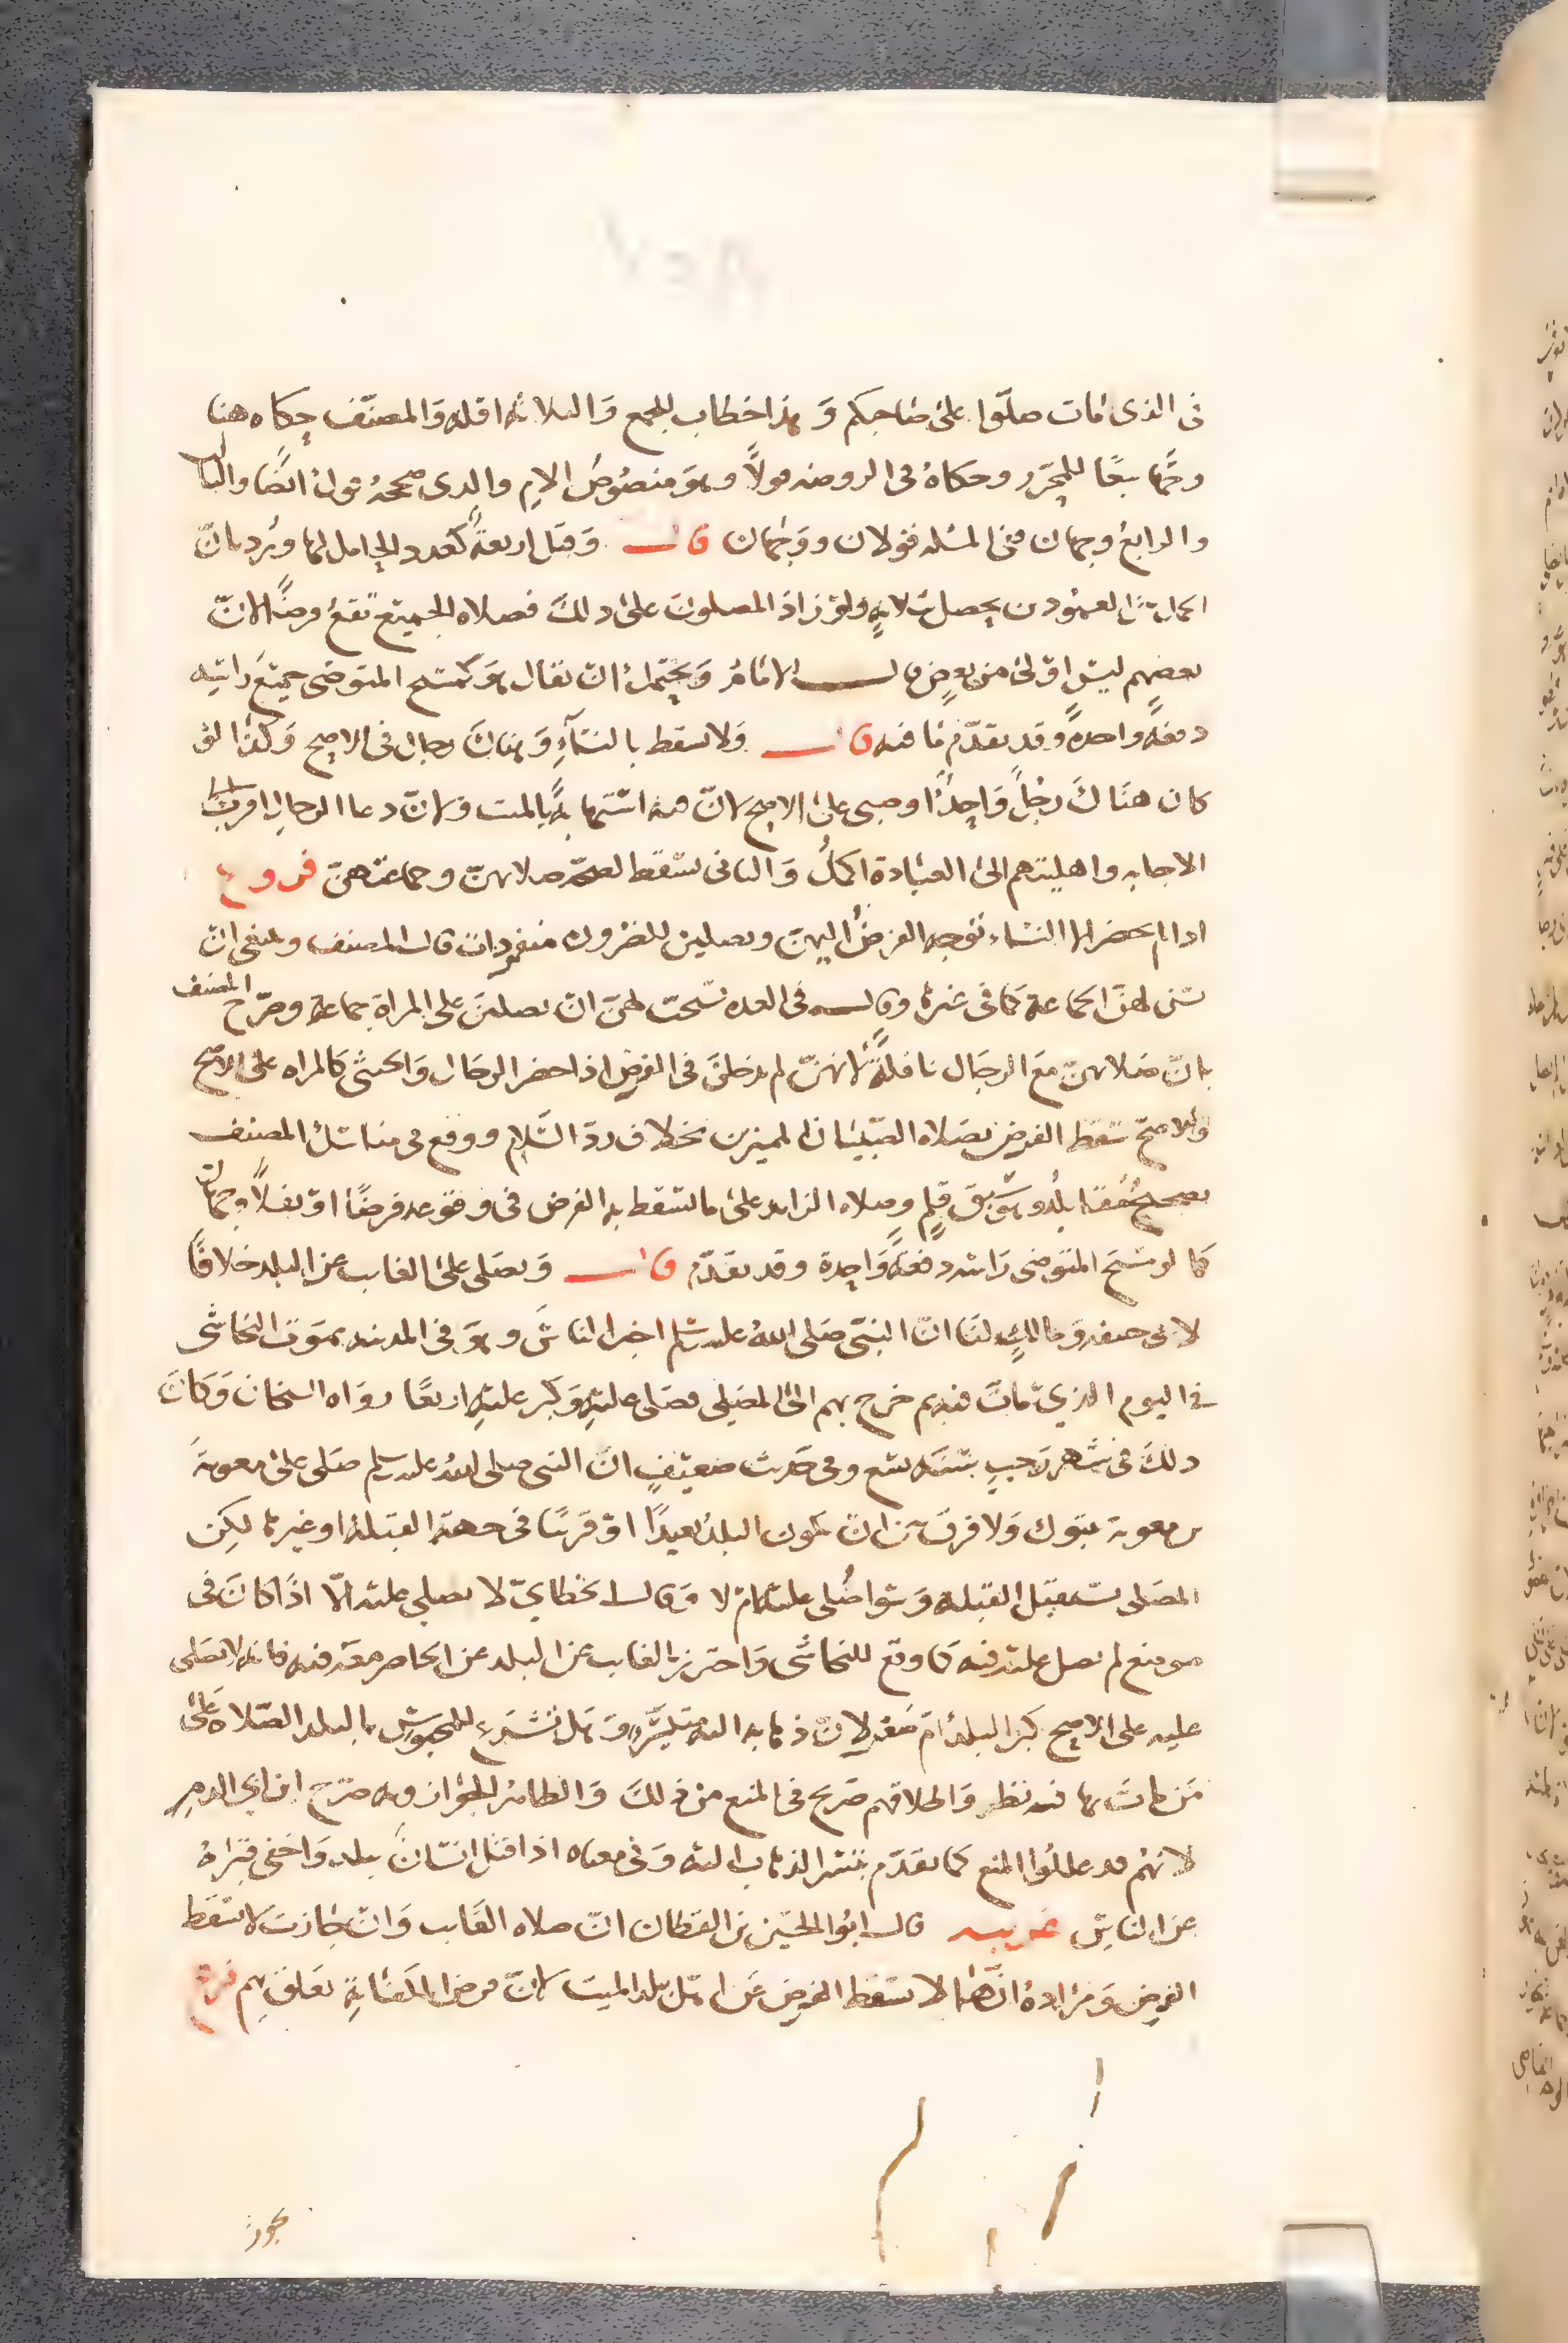 في الذي مات صلّوا على صاحبكم وهذا خطاب للجمع والثلاثة اقله والمصنّف حكاه هنا
وجهًا تبعًا للمحرّر وحكاه في الروضه قولًا وهو منصوص الام والذي صححه قول ايضًا والثالث
والرابع وجهان ففي المسئله قولان ووجهان قال وقيل اربعة كعدد الحامل لها ويرد بان
الحمل بين العمودين يحصل بثلاثه ولو زاد المصلون على ذلك فصلاه الجميع تقع فرضًا لان
بعضهم ليس اولى من بعض قال الامام ويحتمل ان يقال هو كمسح المتوضي جميع راسه
دفعةً واحدةً وقد تقدّم ما فيه قال ولا يسقط بالنسآء وهناك رجال في الاصح وكذا لو
كان هناك رجلًا واحدًا وصبي على الاصح لان فيه استهانةً بالميت ولان دعا الرجال اقرب الى
الاجابه واهليتهم الى العبادة اكمل والثاني يسقط لصحّة صلاتهنّ وجماعتهنّ فروع
اذا لم يحضر الا النساء توجه الفرض اليهن ويصلين للضروره منفردات قال المصنف وينبغي ان
تسن لهن الجماعة كما في غيرها وقال في العده يستحب لهن ان يصلين على المراة جماعة وصرّح المصنف
بان صلاتهنّ مع الرجال نافلةً لانهنّ لم يدخلن في الفرض اذا حضر الرجال والخنثى كالمراه على الاصح
والاصح سقط الفرض بصلاه الصبيان المميزين بخلاف ردّ السّلام ووقع في مناسك المصنف
وصلاه الزايد على ما يسقط به الفرض في وقوعه فرضًا او نفلًا وجهان
كما لو مسح المتوضي راسه دفعةً واحدة وقد تقدّم قال ويصلى على الغايب عن البلد خلافًا
لابي حنيفه ومالك لنا انّ النبي صلى الله عليه وسلم اخبر الناس وهو في المدينه بموت النجاشي
في اليوم الذي مات فيه ثم خرج بهم الى المصلى فصلى عليه وكبر عليه اربعًا رواه الشيخان وكان
ذلك في شهر رجب سنه تسع وفي حديث ضعيف ان النبي صلى الله عليه وسلم صلى على معوية
بن معوية بتبوك ولا فرق بين ان يكون البلد بعيدًا او قريبًا في جهة القبلة او غيرها لكن
المصلى يستقبل القبله وسوا صُلي عليه ام لا وقال الخطابيّ لا يصلى عليه الّا اذا كان في
موضع لم يصل عليه فيه كما وقع للنجاشي واحترز بالغايب عن البلد عن الحاضر معه فيه فانه لا يصلى
عليه على الاصح كبر البلد ام صغر لان ذهابه اليه متيسّر وهل تشرع للمحبوس بالبلد الصّلاه على
من مات بها فيه نظر واطلاقهم صريح في المنع من ذلك والظاهر الجواز وبه صرّح ابن ابي الدم
لانهم قد عللوا المنع كما تقدّم بتيسّر الذهاب اليه وفي معناه اذا قتل انسان ببلد واخفي قبره
عن الناس غريبه قال ابو الحسين بن القطان انّ صلاه الغايب وان جازت لا تسقط
الفرض ومراده انها لا تسقط الفرض عن اهل بلد الميت لان فرض الكفاية تعلق بهم فرع
يجوز